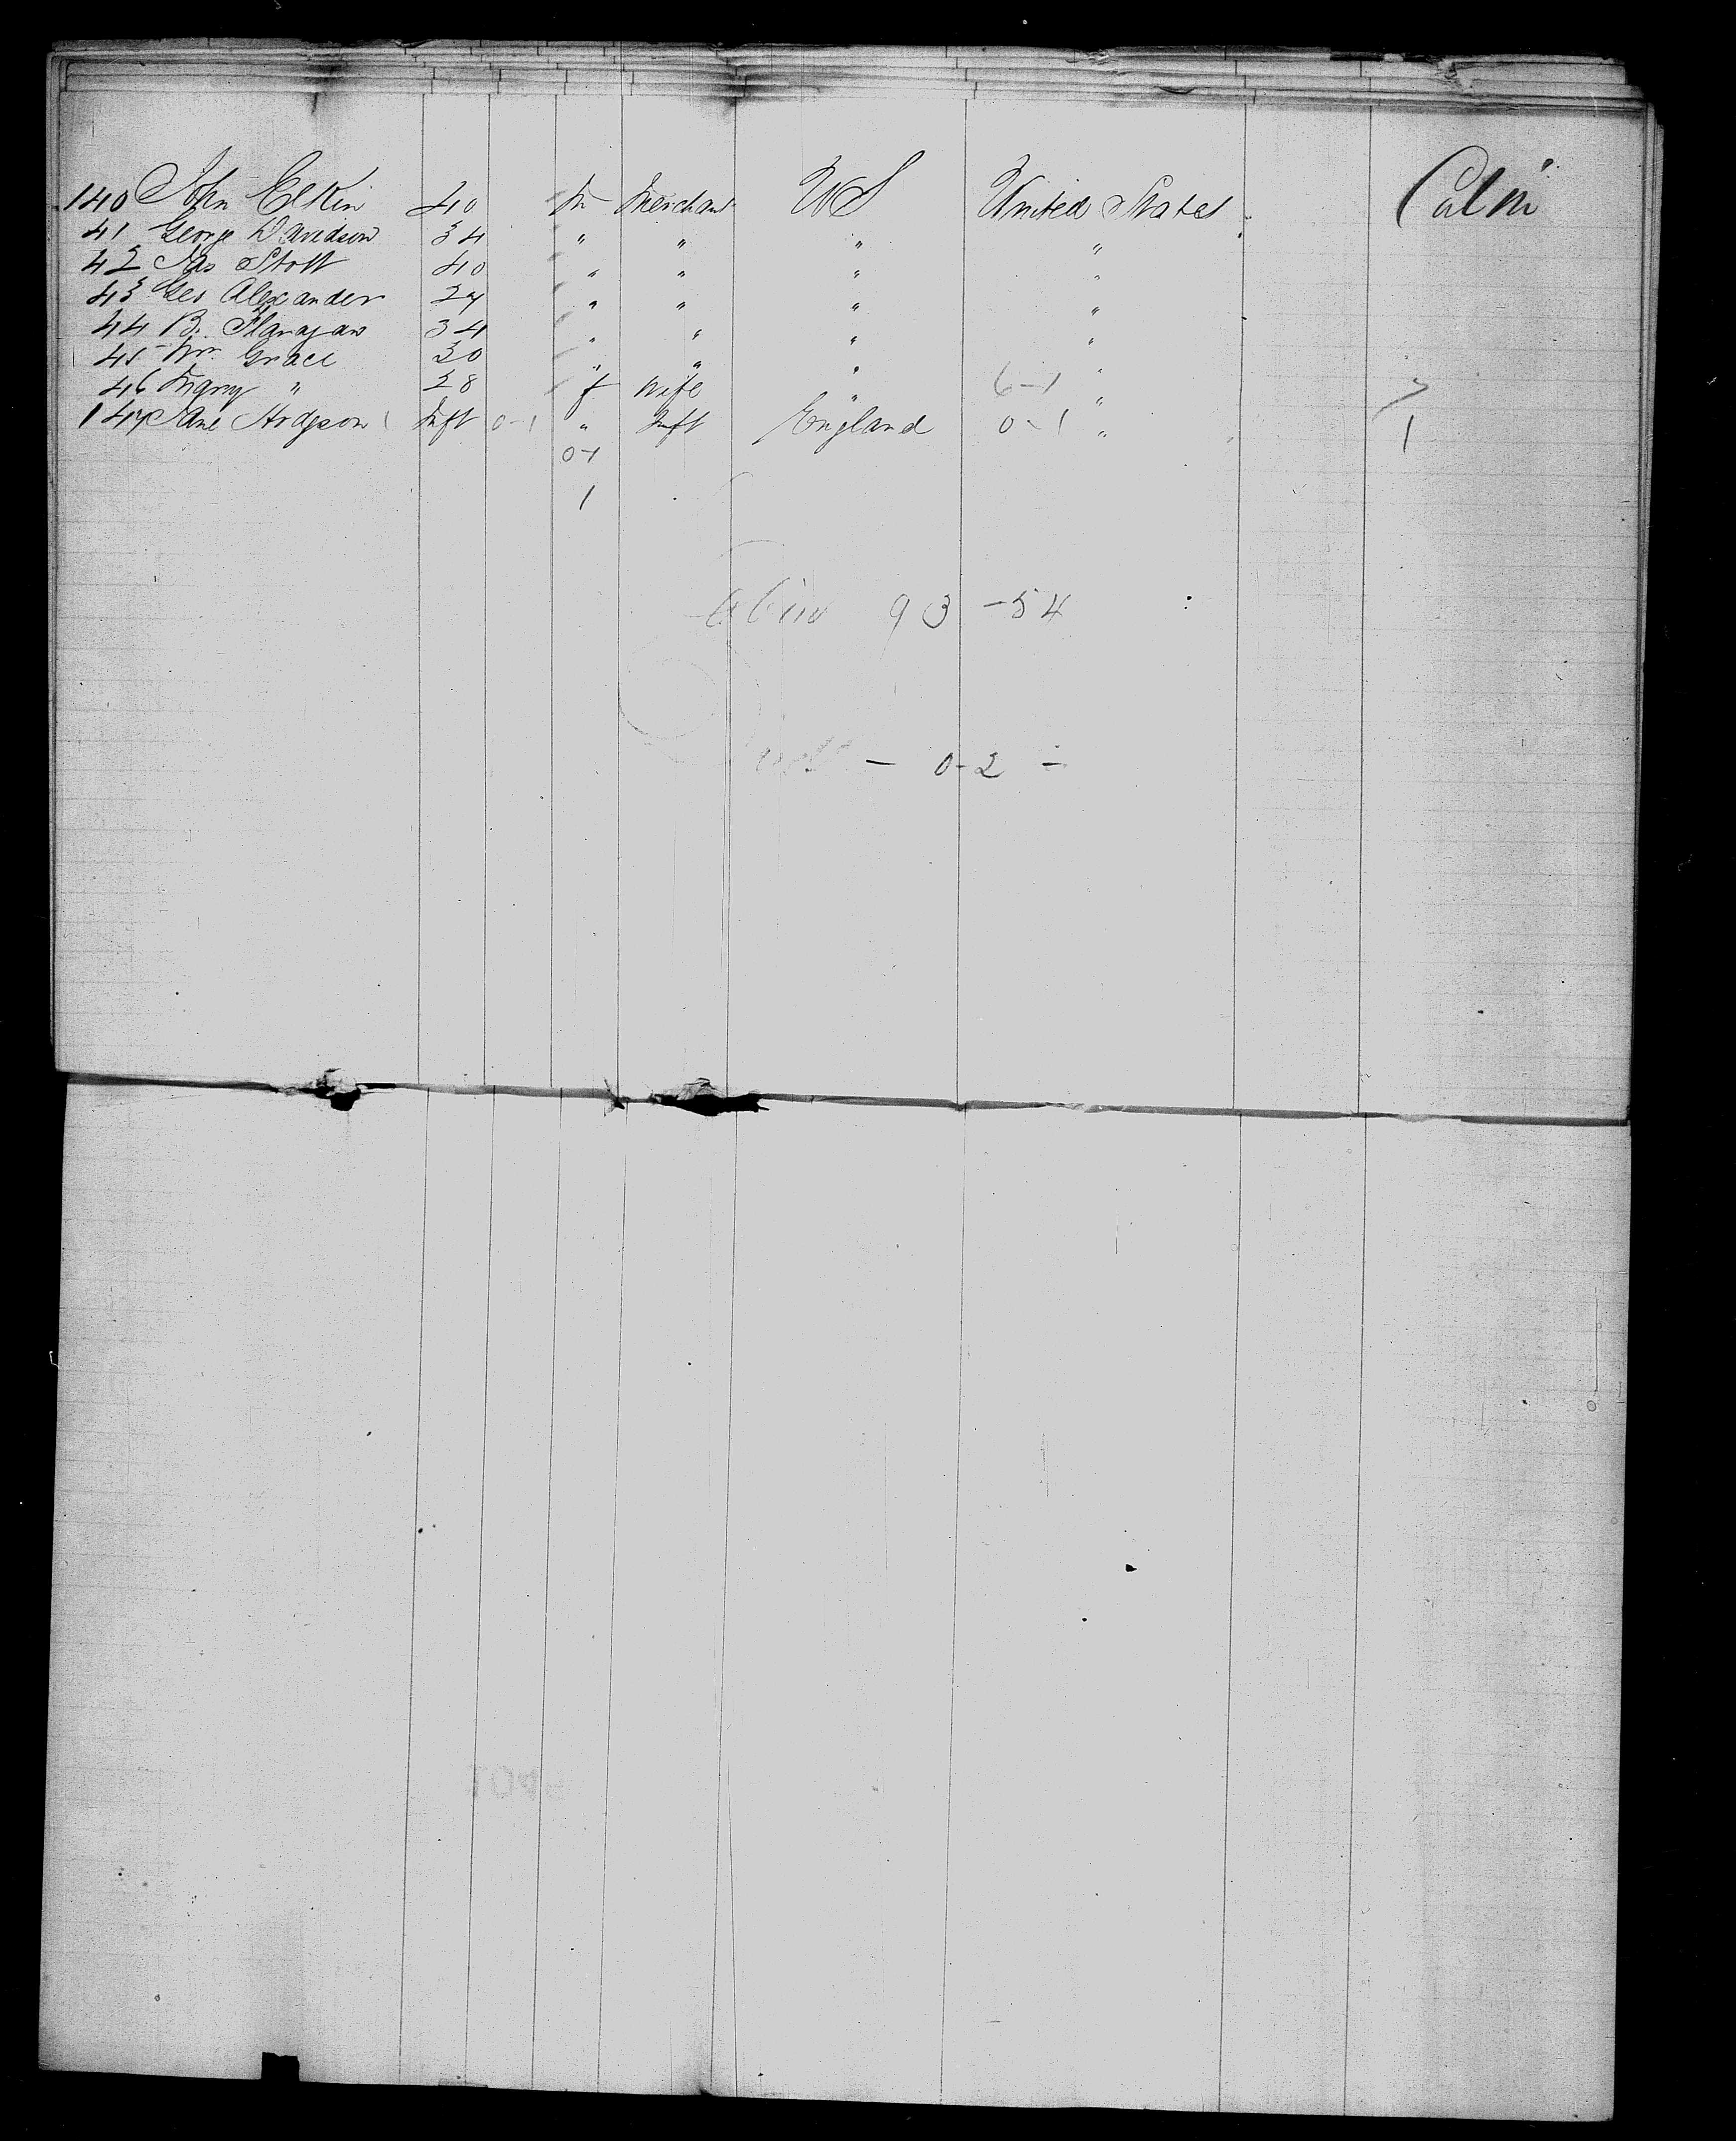 140 John Elkin 40 M Merchant US United States Cabin
41 George Davidson 34 " " " "
42 Jas Stott 40 " " " "
43 Geo Alexander 27 " " " "
44 B. Flanagan 34 " " " "
45 Wm Grace 30 " " " "
46 Mary " 28 f Wife " 6-1 " 7
147 Jane Hodgson Inft 0-1 " Inft England 0-1 " 1
0-1
1
Cabin 93-54
— 0-2 —